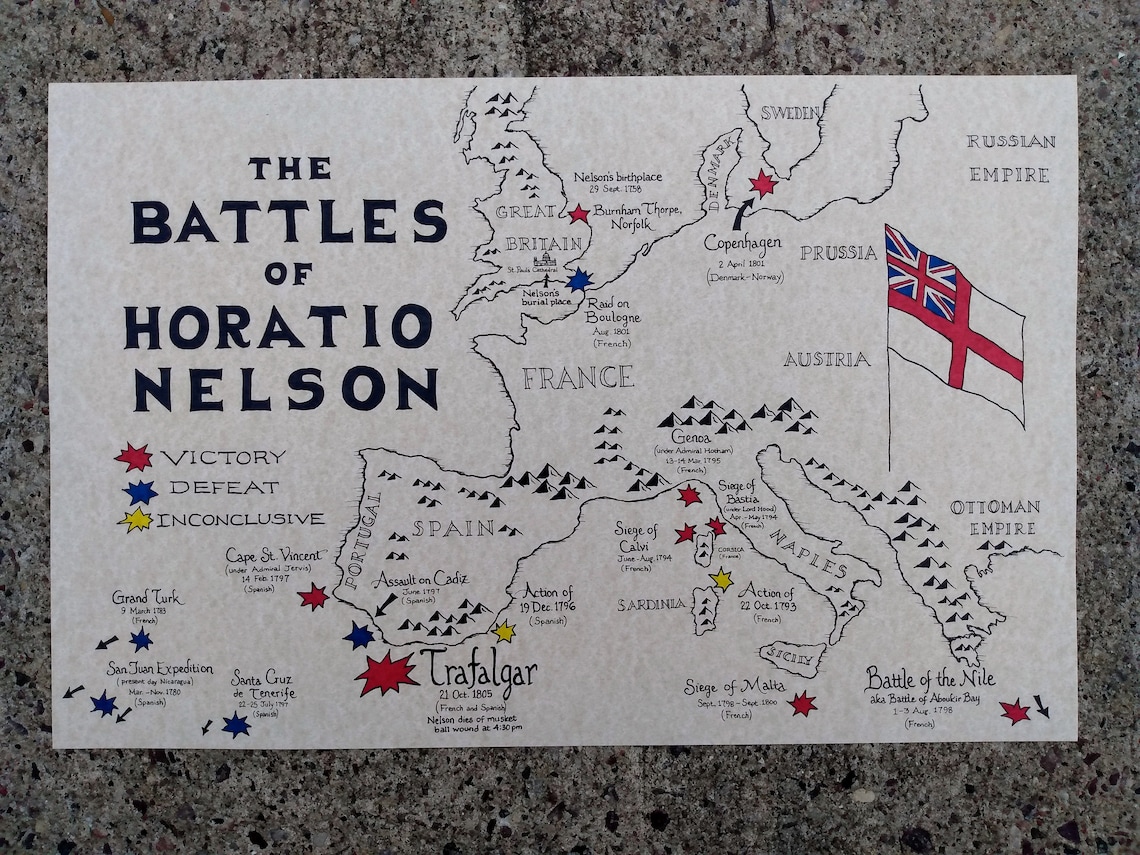 THE
BATTLES
OF
HORATIO
NELSON
VICTORY
DEFEAT
INCONCLUSIVE
SWEDEN
RUSSIAN
EMPIRE
DENMARK
Nelson's birthplace
29 Sept. 1758
Burnham Thorpe,
Norfolk
GREAT
BRITAIN
St. Paul's Cathedral
Nelson's
burial place
Copenhagen
2 April 1801
(Denmark-Norway)
PRUSSIA
Raid on
Boulogne
Aug. 1801
(French)
AUSTRIA
FRANCE
Genoa
(under Admiral Hotham)
13-14 Mar. 1795
(French)
Siege of
Bastia
(under Lord Hood)
Apr.-May 1794
(French)
Siege of
Calvi
June-Aug. 1794
(French)
CORSICA
(France)
NAPLES
OTTOMAN
EMPIRE
SPAIN
PORTUGAL
Cape St. Vincent
(under Admiral Jervis)
14 Feb. 1797
(Spanish)
Assault on Cadiz
June 1797
(Spanish)
Action of
19 Dec. 1796
(Spanish)
SARDINIA
Action of
22 Oct. 1793
(French)
SICILY
Grand Turk
9 March 1783
(French)
San Juan Expedition
(present day Nicaragua)
Mar.-Nov. 1780
(Spanish)
Santa Cruz
de Tenerife
22-25 July 1797
(Spanish)
Trafalgar
21 Oct. 1805
(French and Spanish)
Nelson dies of musket
ball wound at 4:30 pm
Siege of Malta
Sept. 1798 - Sept. 1800
(French)
Battle of the Nile
aka Battle of Aboukir Bay
1-3 Aug. 1798
(French)